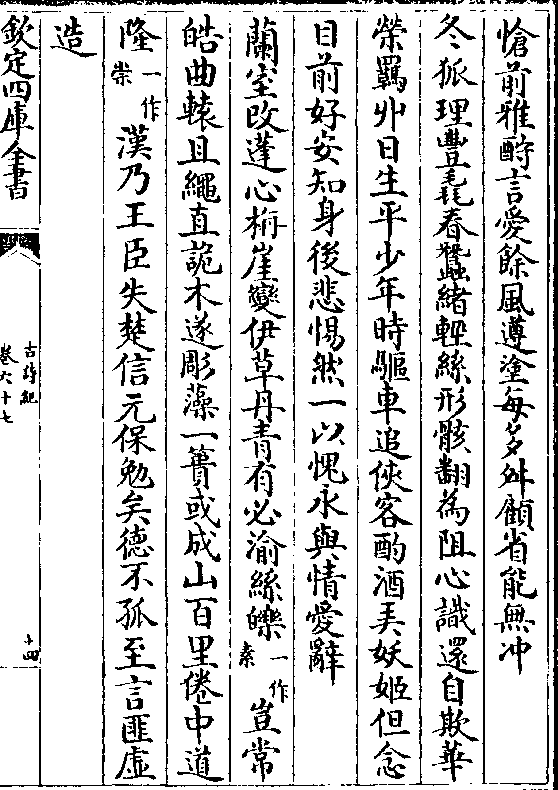 愴前雅酧言愛餘風遵塗每多舛顧省能無冲
冬狐理豐毳春蠶緒輕絲形骸翻為阻心識還自欺華
榮羈丱日生平少年時驅車追俠客酌酒弄妖姬但念
目前好安知身後悲惕然一以愧永與情愛辭
蘭室改蓬心栴崖變伊草丹青有必渝絲皪一作素豈常
皓曲轅且繩直詭木遂彫藻一簣或成山百里倦中道
隆一作崇漢乃王臣失楚信元保勉矣德不孤至言匪虛
造
欽定四庫全書
古詩紀
卷六十七
十四